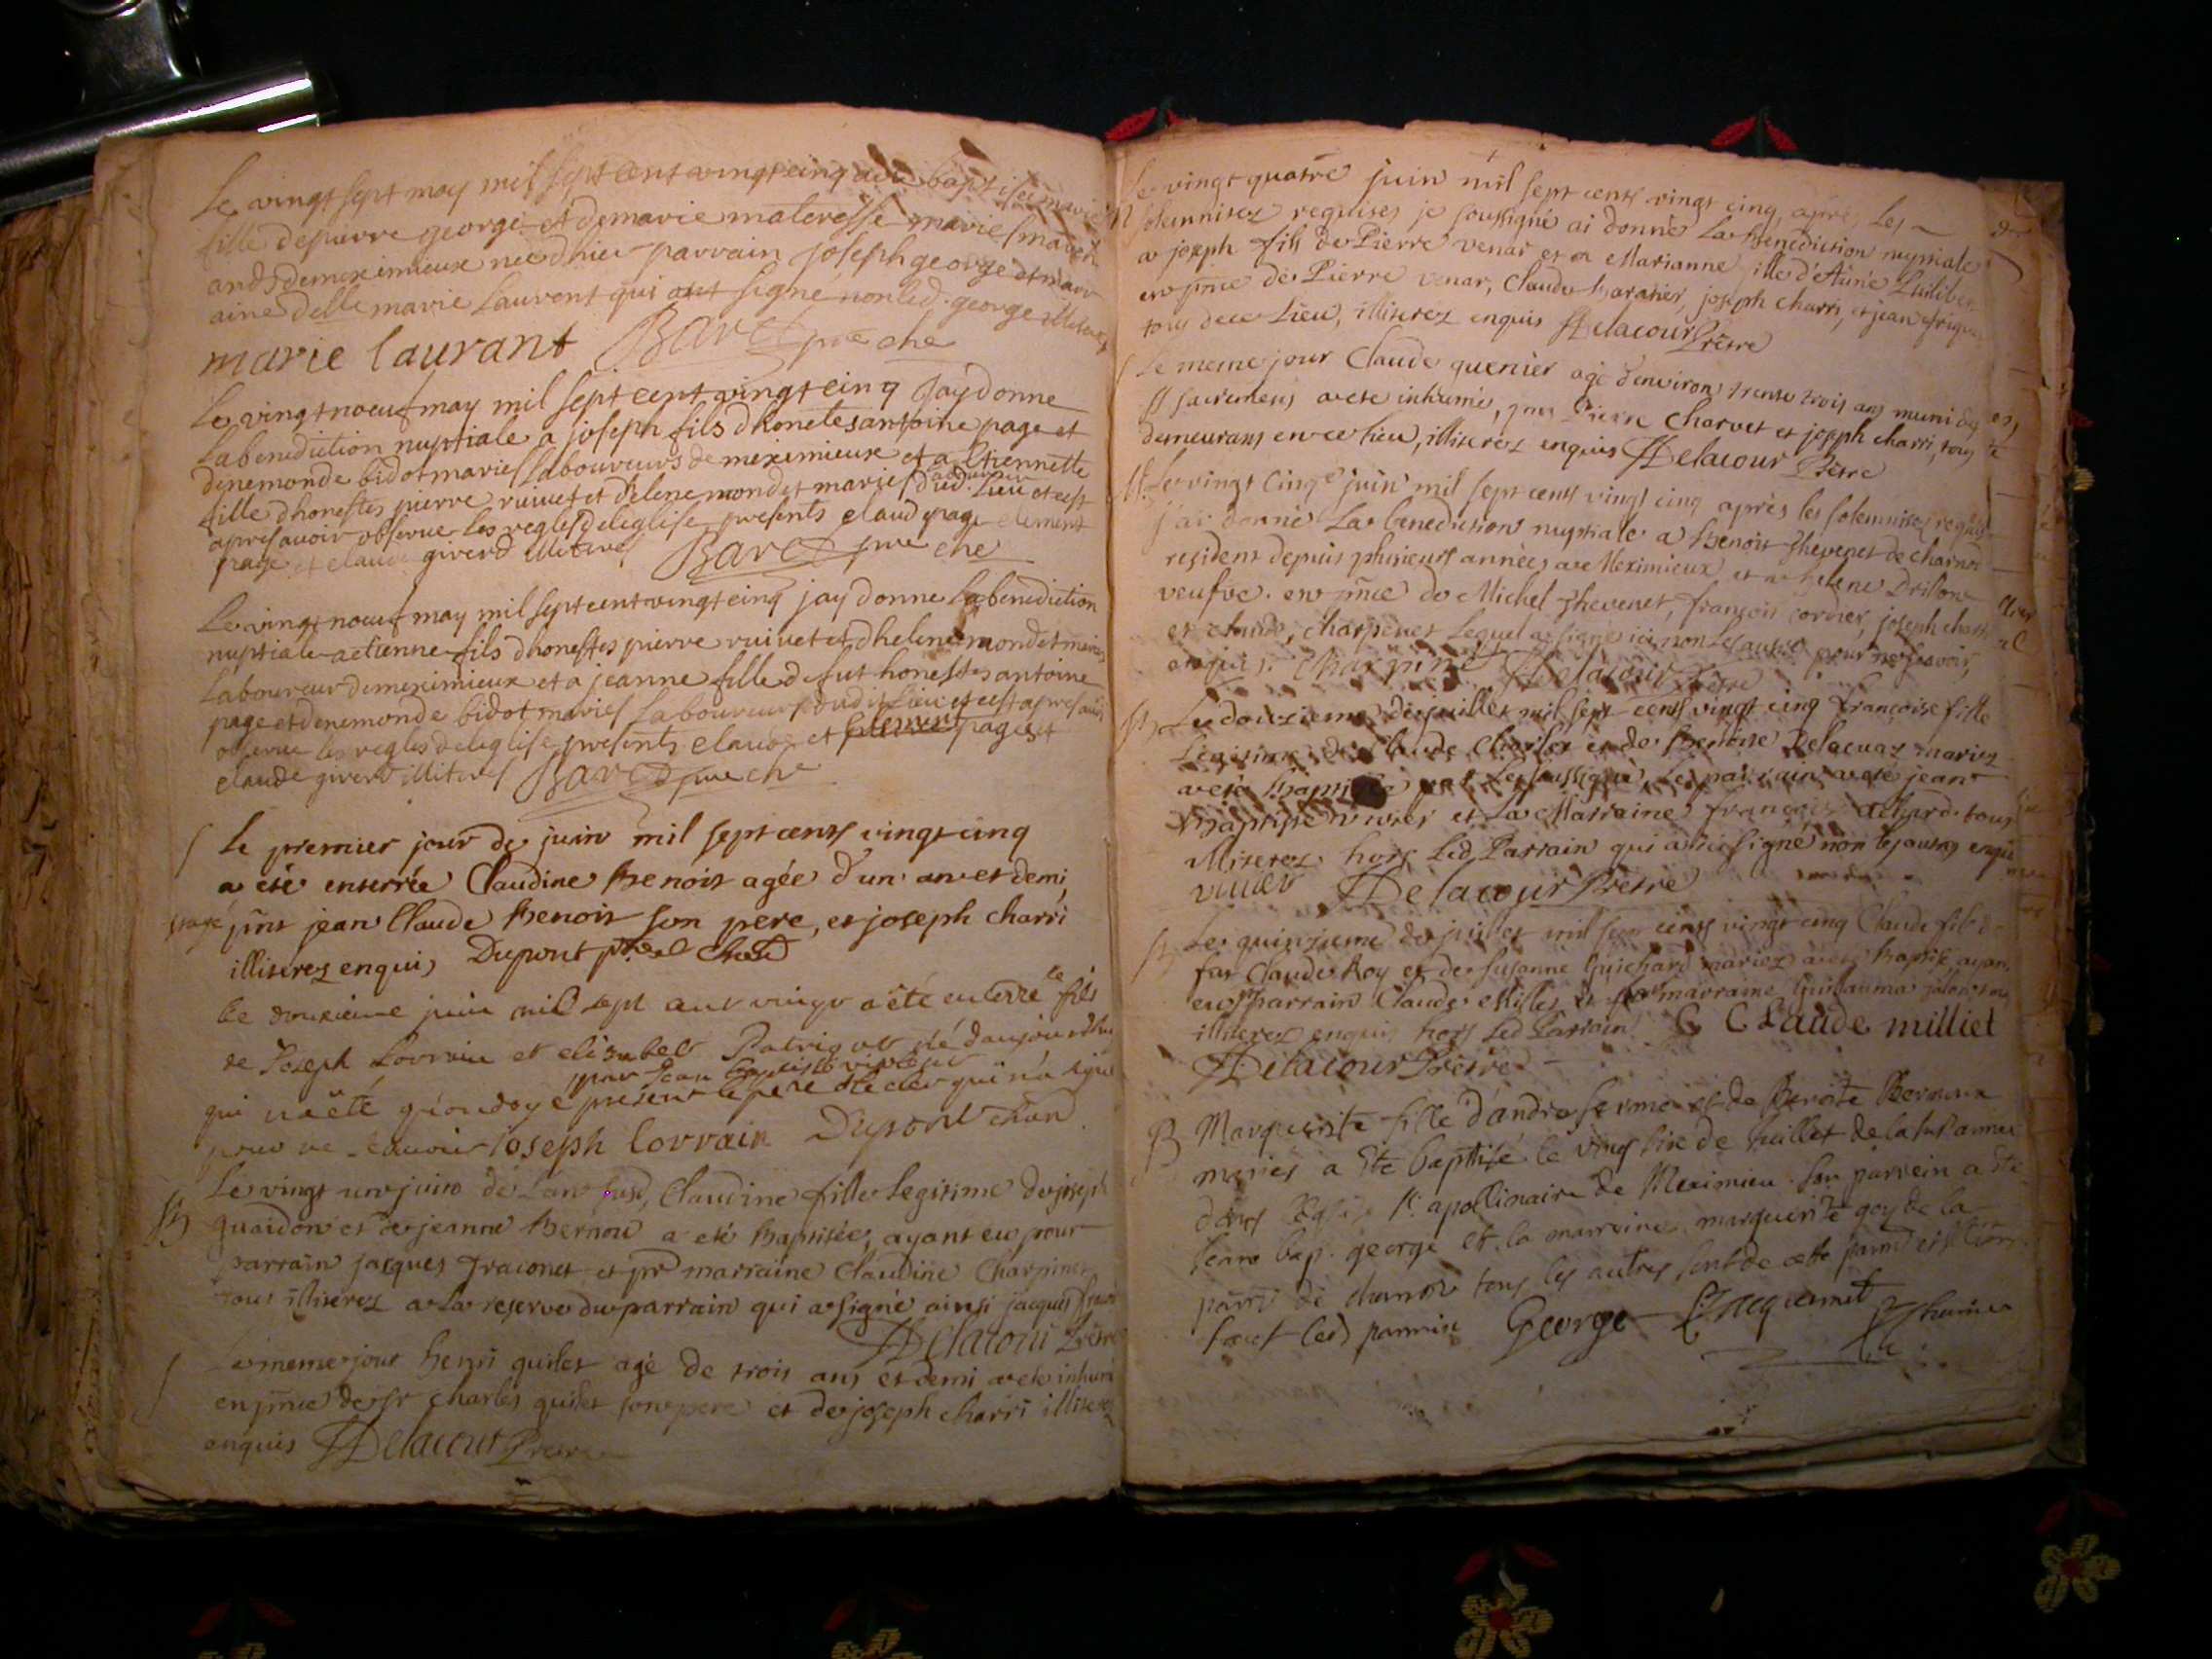 Le vingt sept may mil sept cent vingt cinq a été baptisée marie
fille de pierre george et de marie materesse mariés march
ands de meximieux née d'hier parrain joseph george et marr
aine delle marie Laurent qui ont signé non led. george illiteré
marie laurant Baret pre che
Le vingt noeuf may mil sept cent vingt cinq jay donne
La benediction nuptiale a joseph fils dhonetes antoine page et
denemonde bidot mariés laboureurs de meximieux et a Etiennette
fille dhonestes pierre ruivet et delene mondet mariés dud. Lieu et cest
apres avoir observe les regles de leglise presents claude page clement
page et claude giverd illiterés Baret pre che
Le vingt noeuf may mil sept cent vingt cinq jay donne la benediction
nuptiale a etienne fils dhonestes pierre ruivet et dhelene mondet mariés
Laboureur de meximieux et a jeanne fille de fut honestes antoine
page et denemonde bidot mariés laboureurs dudit Lieu et cest apres avoir
observe les regles de leglise presents claude et clement pages et
claude giverd illiterés Baret pre che
Le premier jour de juin mil sept cents vingt cinq
a été enterrée Claudine Benoit agée d'un an et demi,
pñts jean Claude Benoit son pere, et joseph charri
illiterez enquis Dupont ptre Chan
Le douzieme juin mil sept cent vingt a été enterré le fils
de Joseph Lorrain et elizabet Patrigot né daujourdhuy
qui na été qu'ondoyé
par Jean Baptiste
present le pere et le clerc qui n'a signé
pour ne scavoir ioseph lorrain Dupont chan
Le vingt un juin de L'an susd, Claudine fille legitime de joseph
quaidon et de jeanne Bernou a eté Baptisée, ayant eu pour
parrain jacques Traconet et pr marraine Claudine Charpinet
tous illiterez a la reserve du parrain qui a signé ainsi jacques
Delacour Prêtre
Le meme jour henri quilet agé de trois ans et demi a ete inhumé
en pnce de sr Charles quilet son pere et de joseph charri illiterez
enquis Delacour Prêtre
Le vingt quatre juin mil sept cents vingt cinq, après les
solemnitez requises je soussigné ai donné La Benediction nuptiale
a joseph fils de Pierre venar et a Marianne fille d'Aimé
en pnce de Pierre venar, Claude Baratier, joseph charri, et jean
tous de ce Lieu, illiterez enquis Delacour Prêtre
Le meme jour Claude quenier agé d'environ trente trois ans muni des
sacremens a ete inhumé, pnts Pierre Charvet et joseph charri, tous
demeurans en ce lieu, illiterez enquis Delacour Prêtre
Le vingt cinqe juin mil sept cents vingt cinq après les solemnitez requises
j'ai donné La benediction nuptiale a Benoit Thevenet de charnoz
resident depuis plusieurs années a Meximieux et a helene Drillon
veufve. en pnce de Michel Thevenet, françois cordier, joseph charri
et claude, charpenet Lequel a signé ici non les autres pour ne scavoir,
enquis. Charpine Delacour Prêtre
Le douzieme de juillet mil sept cents vingt cinq Françoise fille
Legitime de Claude Charles et de Benoite Delacuaz mariez
a eté Baptisée par Le soussigné, Le parrain a eté jean
Baptiste vivier et La Marraine françoise achard tous
illiterez hors Led. Parrain qui a ici signé non les autres enquis
vivier Delacour Prêtre
Le quinzieme de juillet mil sept cents vingt cinq Claude fils de
feu Claude Roy et de Susanne Guichard mariez a eté Baptisé ayant
eu pr parrain Claude Millet et pr marraine Guillauma
illiterez enquis hors Led Parrain C Claude milliet
Delacour Prêtre
B Marguerite fille d'andre fermet et de Benoite
mariés a été baptisé le vingt sixe de juillet de la susd année
dans l'Eglise St. apollinaire de Meximieu. Son parrein a été
Jean bap. george et la marreine marguerite goy de la
parr. de charnoz tous les autres sont de cette parr. et illiter.
sauf led parrein George Jacquemet